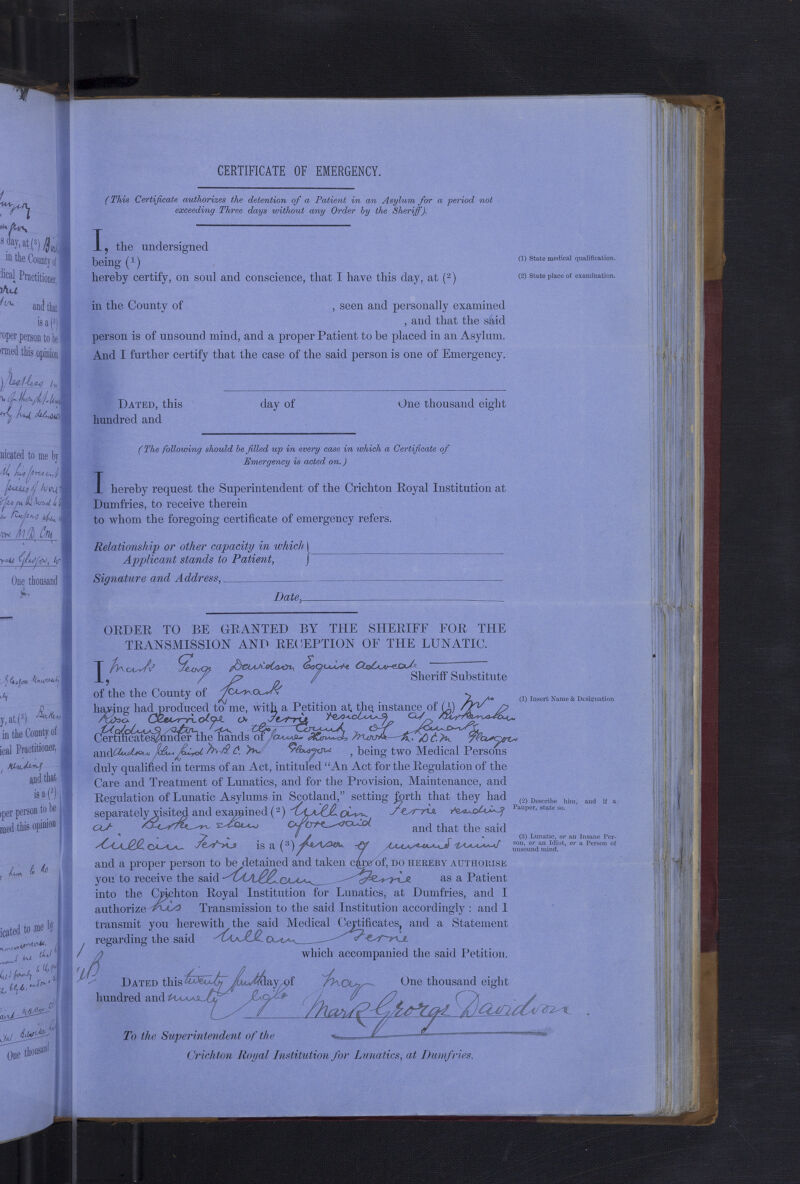 CERTIFICATE OF EMERGENCY.
(This Certificate authorizes the detention of a Patient in an Asylum for a period not
exceeding Three days without any Order by the Sheriff).
I, the undersigned
being (1)
(1) State medical qualification.
hereby certify, on soul and conscience, that I have this day, at (2)
(2) State place of examination.
in the County of , seen and personally examined
, and that the said
person is of unsound mind, and a proper Patient to be placed in an Asylum.
And I further certify that the case of the said person is one of Emergency.
DATED, this day of One thousand eight
hundred and
(The following should be filled up in every case in which a Certificate of
Emergency is acted on.)
I hereby request the Superintendent of the Crichton Royal Institution at
Dumfries, to receive therein
to whom the foregoing certificate of emergency refers.
Relationship or other capacity in which
Applicant stands to Patient,
Signature and Address,
Date,
ORDER TO BE GRANTED BY THE SHERIFF FOR THE
TRANSMISSION AND RECEPTION OF THE LUNATIC.
I, Mark George Davidson Esquire Advocate
Sheriff Substitute
of the the County of Lanark
having had produced to me, with a Petition at the instance of (1) Mrs
(1) Insert Name & Designation
Rosa Clarridge or Ferrie residing at Birkenshaw
Uddingston in the County of Lanark
Certificates under the hands of James Thomas Moore L.D.C.M. Glasgow
and Andrew M.B.C.M Glasgow , being two Medical Persons
duly qualified in terms of an Act, intituled "An Act for the Regulation of the
Care and Treatment of Lunatics, and for the Provision, Maintenance, and
Regulation of Lunatic Asylums in Scotland," setting forth that they had
separately visited and examined (2) William Ferrie residing
(2) Describe him, and if a
Pauper, state so.
at Birkenshaw aforesaid and that the said
William Ferrie is a (3) person of unsound mind
(3) Lunatic, or an Insane Per-
son, or an Idiot, or a Person of
unsound mind.
and a proper person to be detained and taken care of, DO HEREBY AUTHORISE
you to receive the said William Ferrie as a Patient
into the Crichton Royal Institution for Lunatics, at Dumfries, and I
authorize his Transmission to the said Institution accordingly : and I
transmit you herewith the said Medical Certificates, and a Statement
regarding the said William Ferrie
which accompanied the said Petition.
DATED this twenty fourth day of May One thousand eight
hundred and ninety eight
Mark George Davidson
To the Superintendent of the
Crichton Royal Institution for Lunatics, at Dumfries.